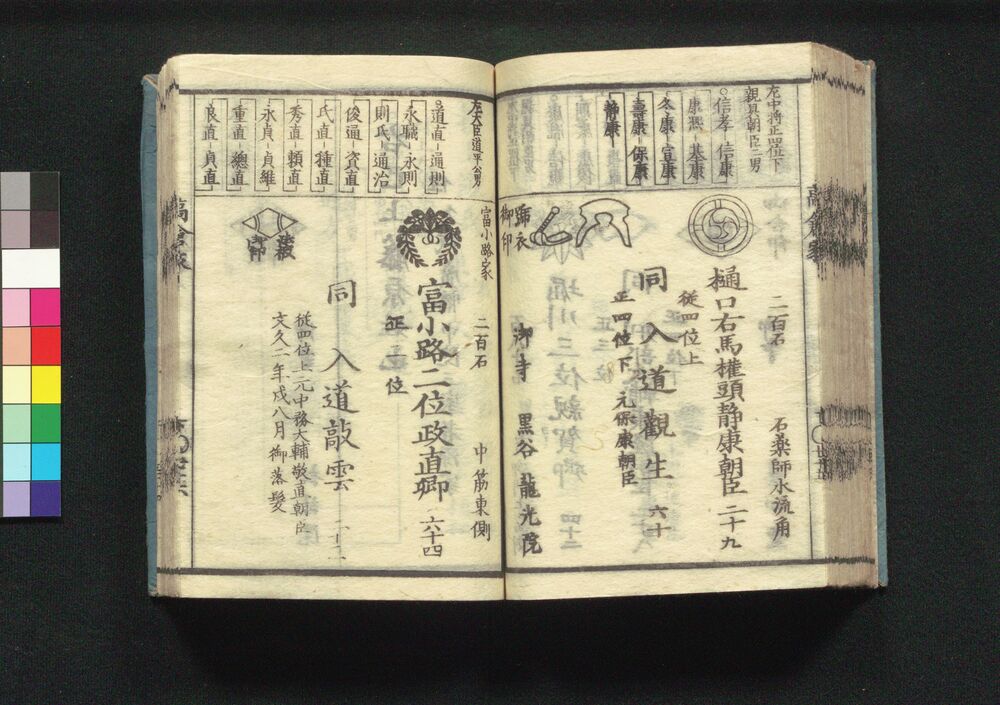 左中将正四位下
親具朝臣二男
信孝 信康
康煕 基康
冬康 宣康
壽康 保康
静康
二百石
石薬師水流角
樋口右馬權頭静康朝臣 二十九
従四位上
同 入道觀生 六十
正四位下 元保康朝臣
御印
御寺 黒谷 龍光院
左大臣道平公男
道直 通則
永職 永則
則氏 通治
俊通 資直
氏直 種直
秀直 頼直
永貞 貞維
重直 總直
良直 貞直
富小路家
二百石
中筋東側
富小路二位政直卿 六十四
正二位
同 入道敲雲
従四位上元中務大輔敬直朝臣
文久二年戌八月御落髪
高倉家